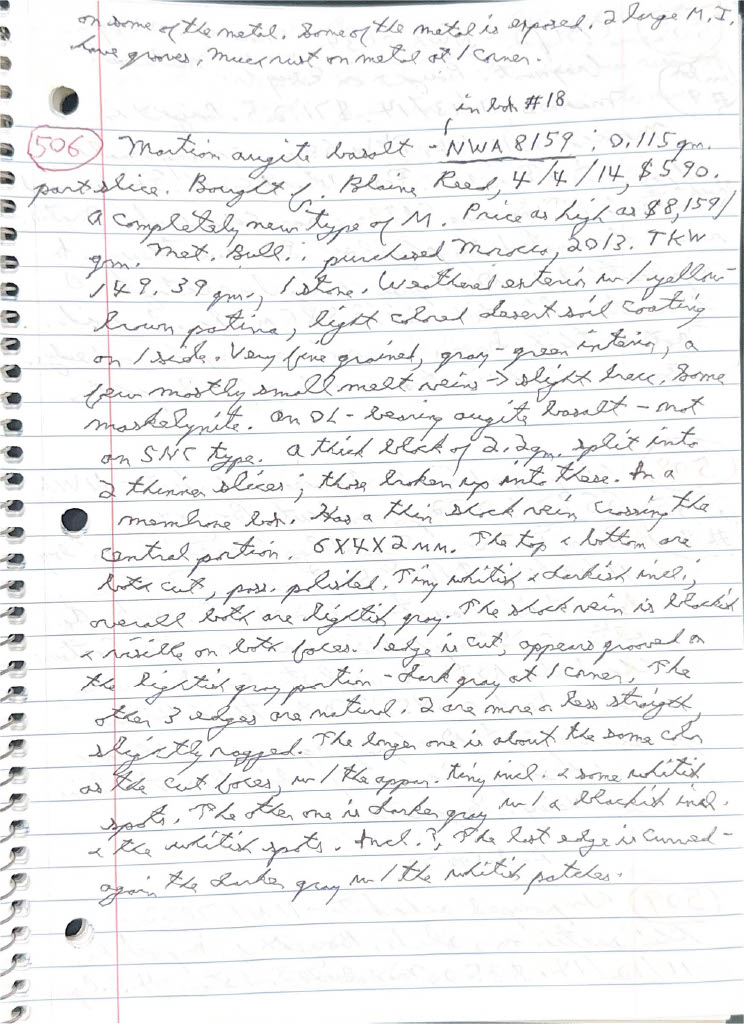 on some of the metal. Some of the metal is exposed. 2 large M.I.
have grooves, much rust on metal at 1 corner.
in box #18
506 Martian augite basalt - NWA 8159 ; 0.115 gm.
part slice. Bought fr. Blaine Reed, 4/4/14, $590.
A completely new type of M. Price as high as $8,159/
gm. Met. Bull.: purchased Morocco, 2013. TKW
149.39 gm., 1 stone. Weathered exterior w/ yellow-
brown patina, light colored desert soil coating
on 1 side. Very fine grained, gray-green interior, a
few mostly small melt veins → slight brecc. Some
maskelynite. An OL-bearing augite basalt - not
an SNC type. A thick block of 2.2 gm. split into
2 thinner slices; those broken up into these. In a
membrane box. Has a thin shock vein crossing the
central portion. 6X4X2 mm. The top & bottom are
both cut, poss. polished. Tiny whitish & darkish incl.;
overall both are lightish gray. The shock vein is blackish
& visible on both faces. 1 edge is cut, appears grooved on
the lightish gray portion - dark gray at 1 corner. The
other 3 edges are natural. 2 are more or less straight,
slightly ragged. The longer one is about the same color
as the cut faces, w/ the appar. tiny incl. & some whitish
spots. The other one is darker gray w/ a blackish incl.
& the whitish spots. Incl.?, The last edge is curved -
again the darker gray w/ the whitish patches.